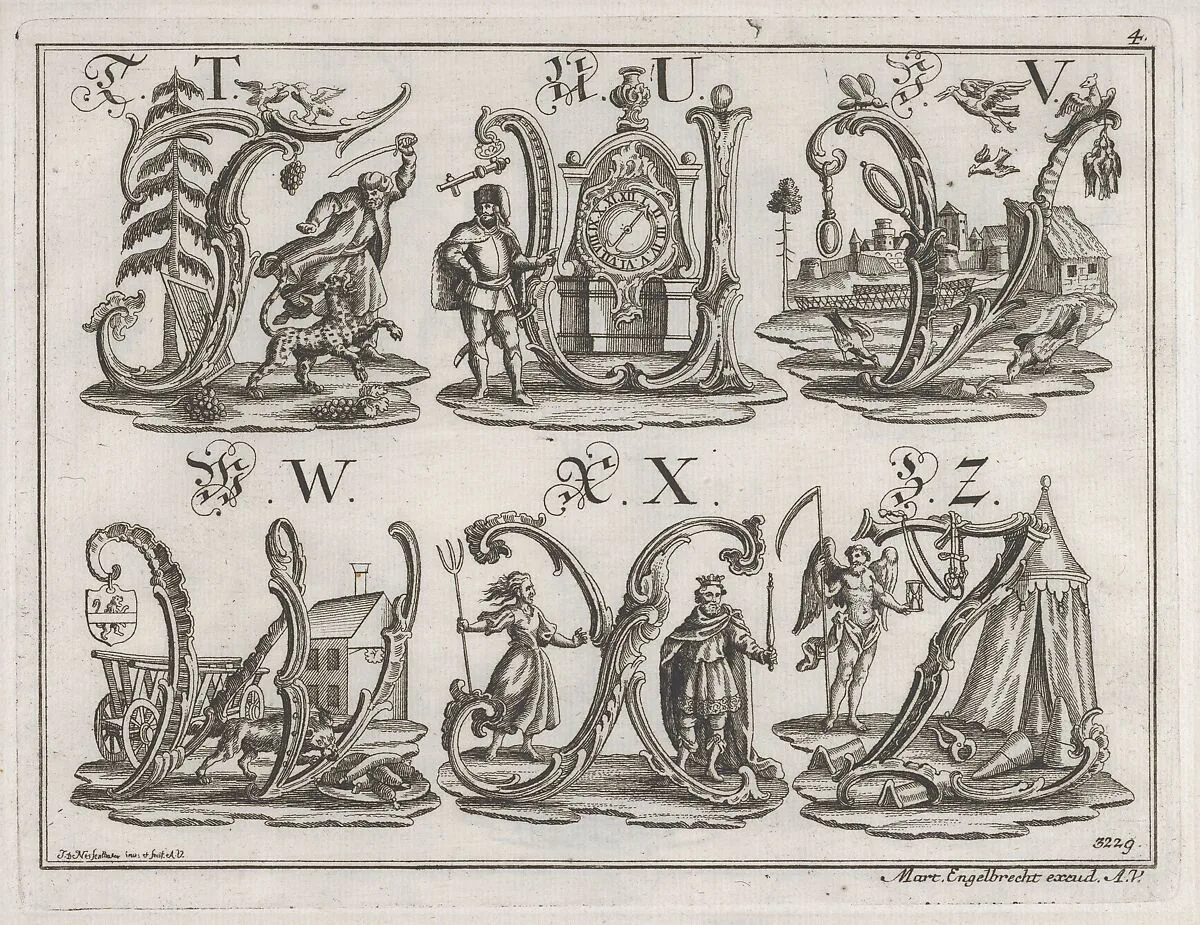 4.
T. T. U. U. V. V.
W. W. X. X. Z. Z.
3229.
inv: et fecit. A.V.
Mart. Engelbrecht excud. A.V.